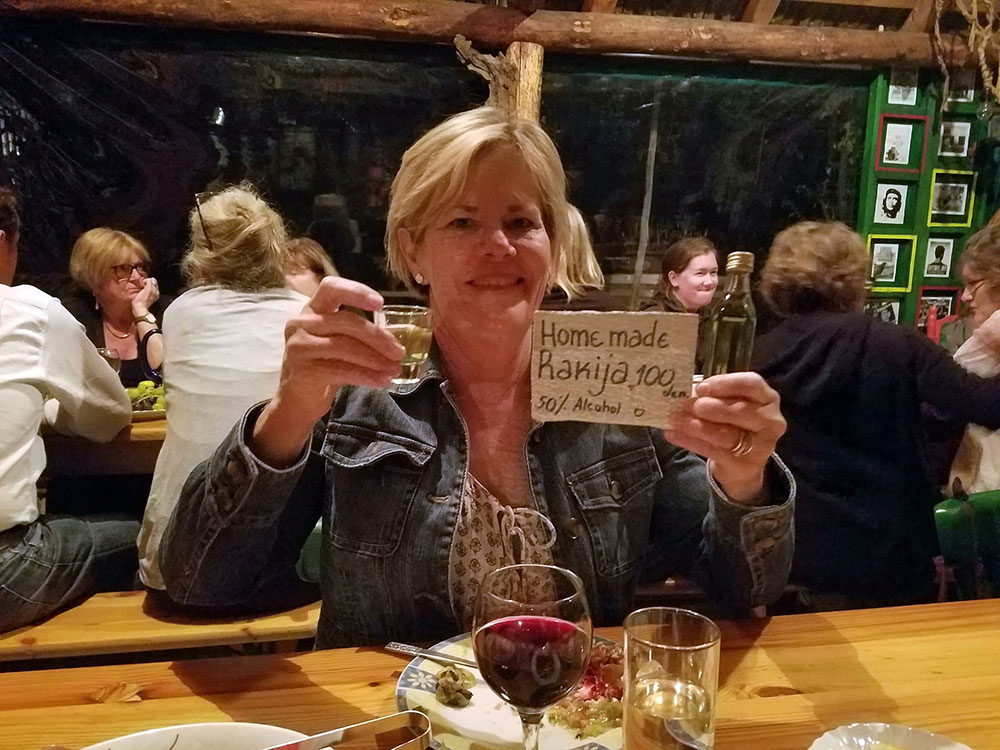 Home made
Rakija 100
den.
50% Alcohol